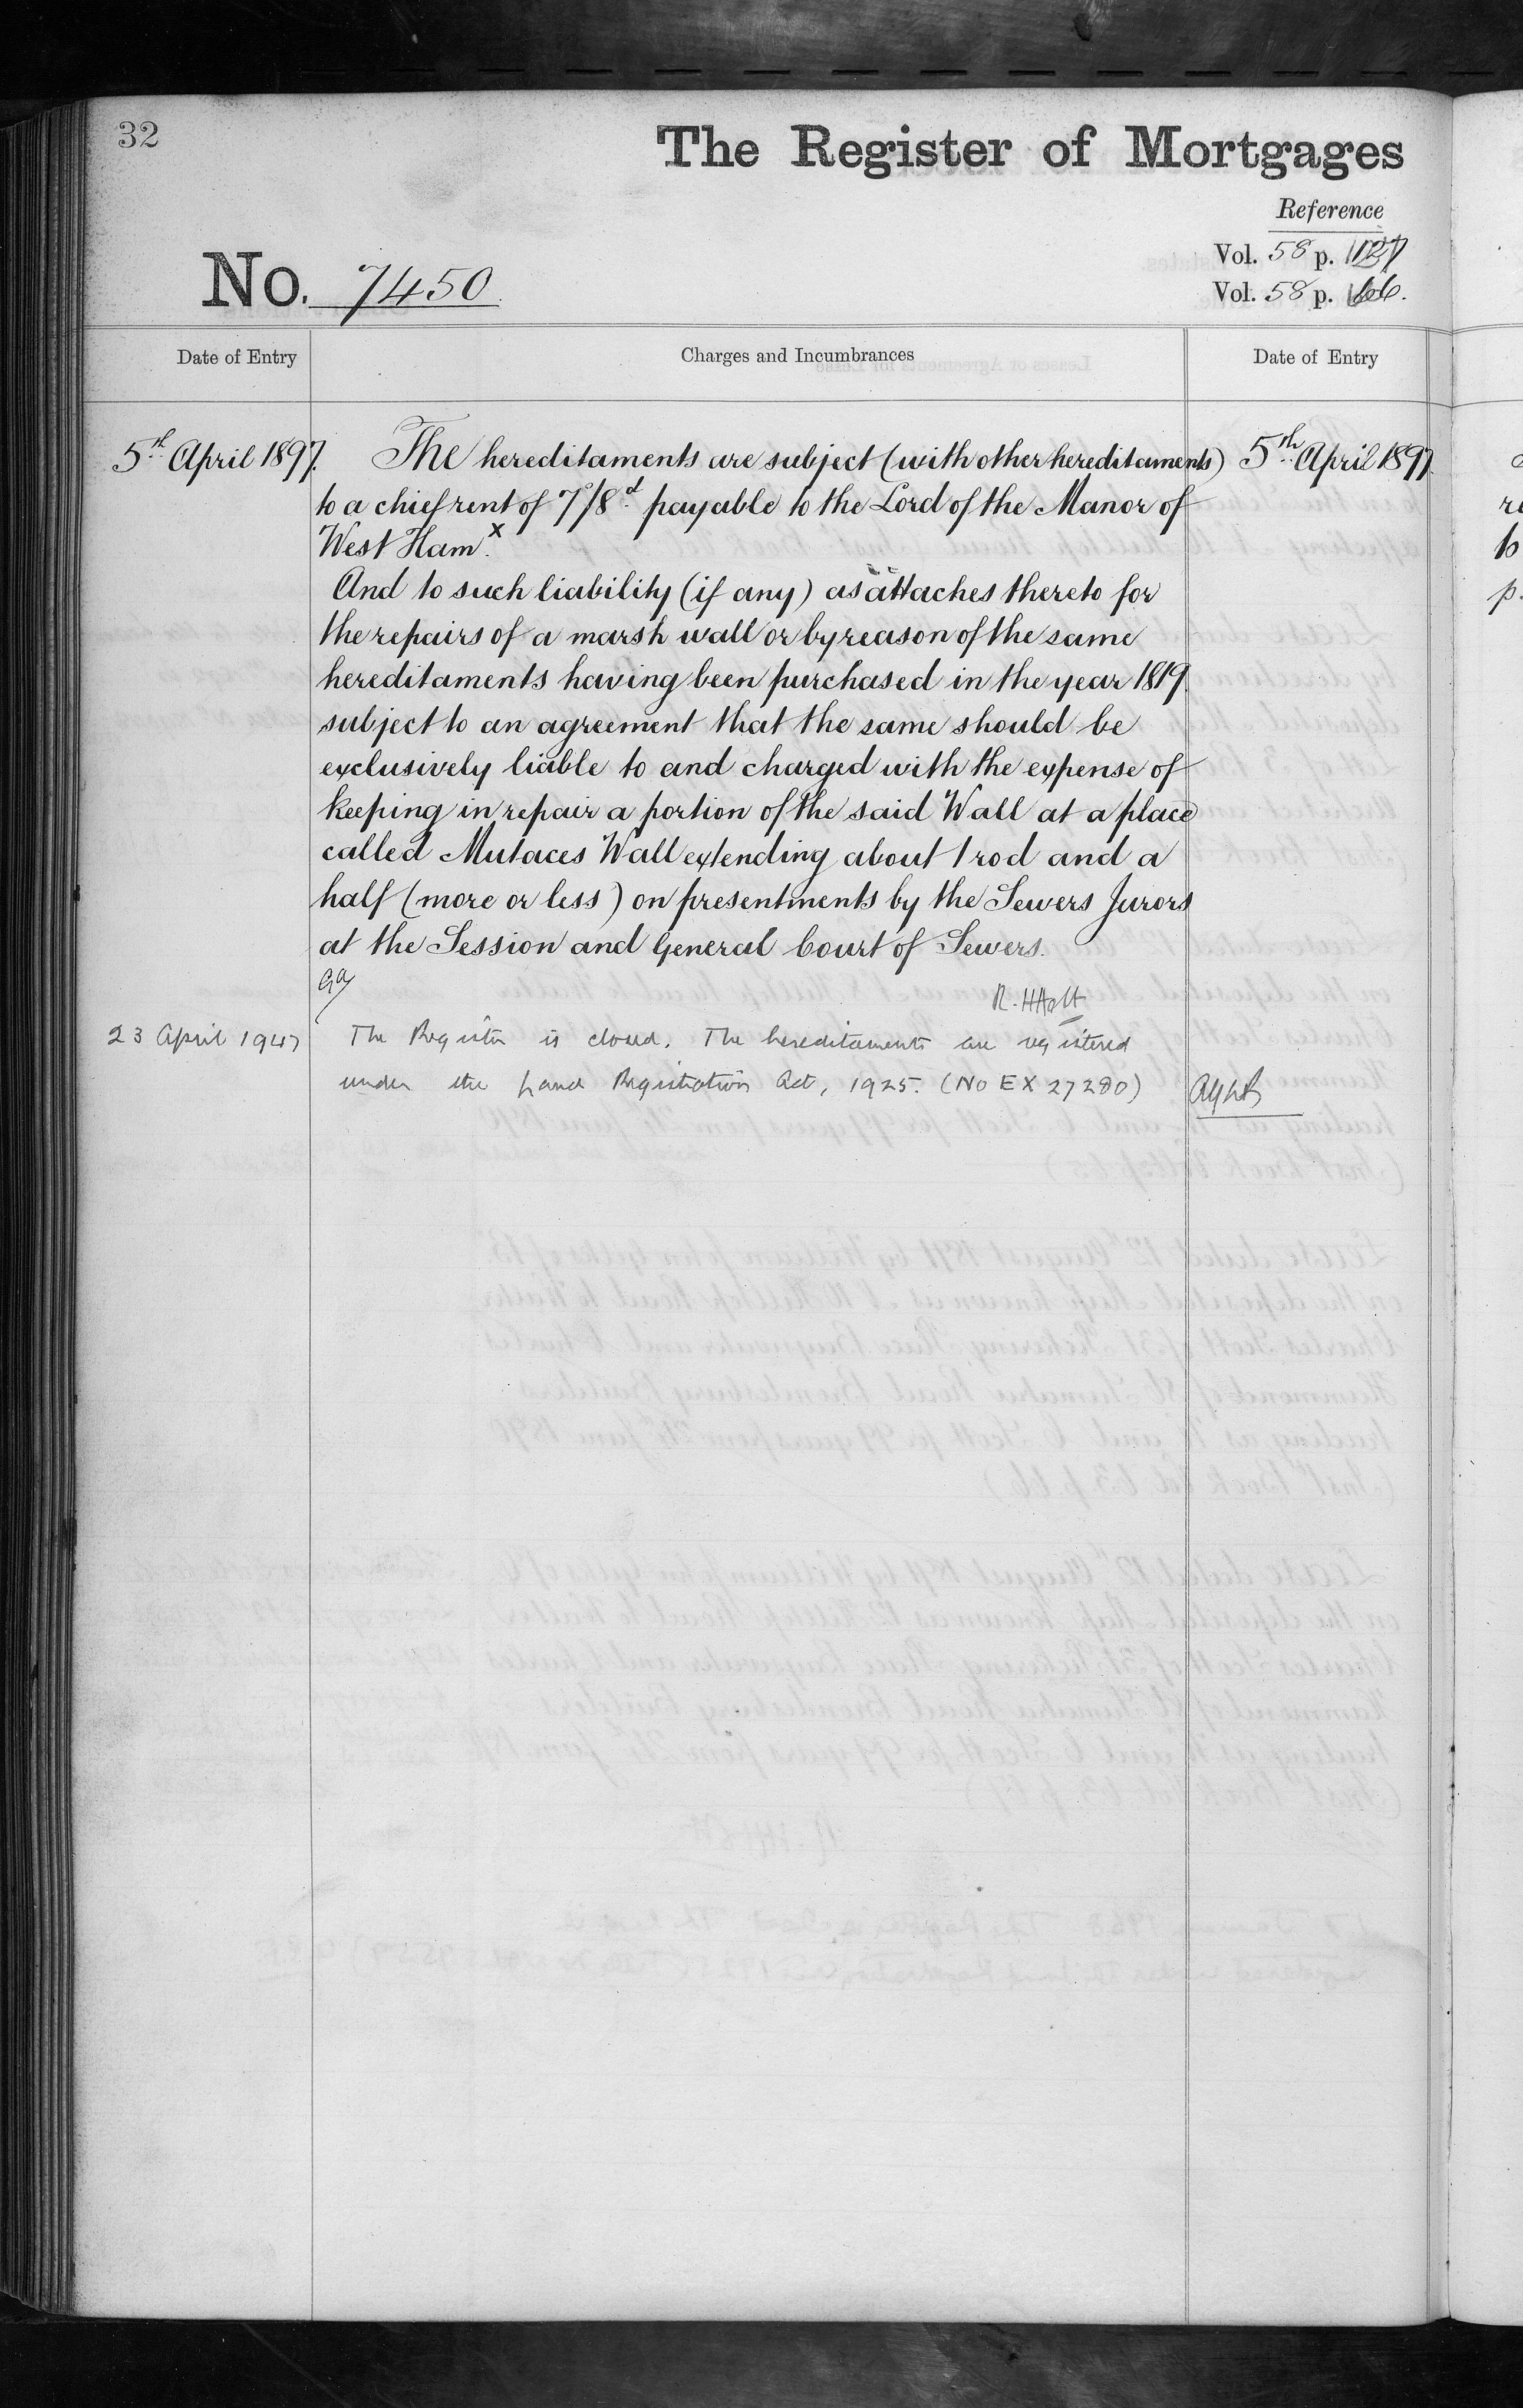 32
The Register of Mortgages
Reference
Vol. 58 p.
Vol. 58 p. 166.
No. 7450
Date of Entry
Charges and Incumbrances
Date of Entry
5th April 1897. The hereditaments are subject (with other hereditaments) 5th April 1897.
to a chief rent of 7/8d payable to the Lord of the Manor of
West Ham.x
And to such liability (if any) as attaches thereto for
the repairs of a marsh wall or by reason of the same
hereditaments having been purchased in the year 1819
subject to an agreement that the same should be
exclusively liable to and charged with the expense of
keeping in repair a portion of the said Wall at a place
called Mutaces Wall extending about 1 rod and a
half (more or less) on presentments by the Sewers Jurors
at the Session and General Court of Sewers.
R. H Holt
23 April 1947 The Register is closed. The hereditaments are registered
under the Land Registration Act, 1925. (No EX 27280)